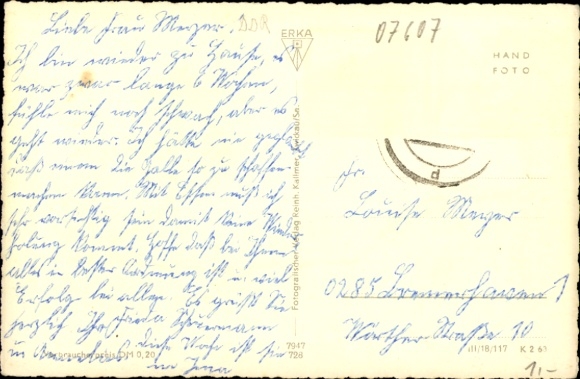 Liebe Frau Meyer.
Ich bin wieder zu Hause, es
war zwar lange 6 Wochen,
fühle mich noch schwach, aber es
geht wieder. Ich hätte nie gedacht
daß einem die Galle so zu schaffen
machen kann. Mit Essen muß ich
sehr vorsichtig sein damit keine Wieder
holung kommt. Hoffe daß bei Ihnen
alles in bester Ordnung ist u. viel
Erfolg bei allem. Es grüßt Sie
herzlich Ihre
diese Woche ist sie
in Jena
DDR
ERKA
07607
HAND
FOTO
Fotografischer Verlag Reinh. Kallmer, Zwickau/Sa.
Verbraucherpreis DM 0,20
7947
728
d
Fr.
Louise Meyer
0285 Bremerhaven
Wörther Straße 10
III/18/117 K 2 63
1,-